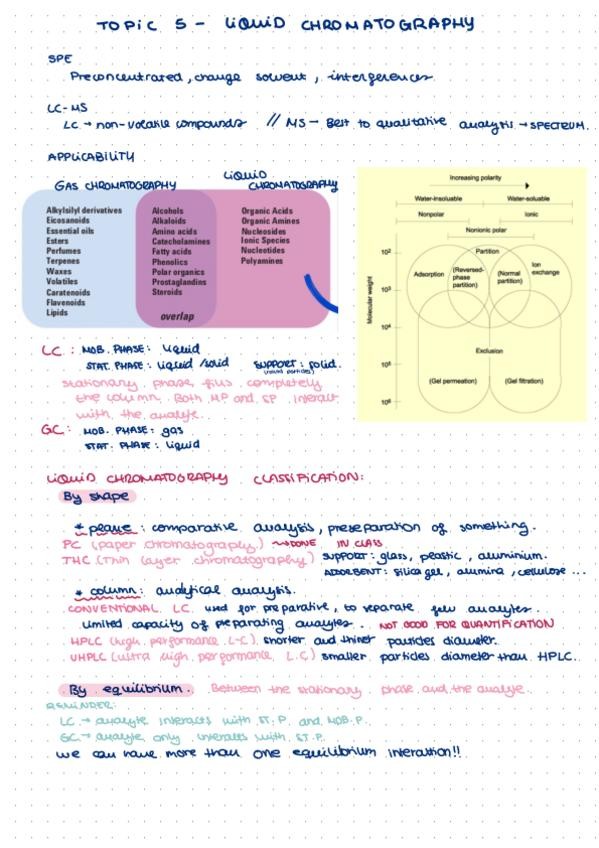 TOPIC 5 - LIQUID CHROMATOGRAPHY
SPE
Preconcentrated, change solvent, interferences
LC-MS
LC → non-volatile compounds // MS → Best to qualitative analysis → SPECTRUM.
APPLICABILITY
GAS CHROMATOGRAPHY
LIQUID CHROMATOGRAPHY
Alkylsilyl derivatives
Eicosanoids
Essential oils
Esters
Perfumes
Terpenes
Waxes
Volatiles
Caratenoids
Flavenoids
Lipids
Alcohols
Alkaloids
Amino acids
Catecholamines
Fatty acids
Phenolics
Polar organics
Prostaglandins
Steroids
overlap
Organic Acids
Organic Amines
Nucleosides
Ionic Species
Nucleotides
Polyamines
Increasing polarity
Water-insoluable
Water-soluable
Nonpolar
Ionic
Nonionic polar
Partition
Adsorption
(Reversed-phase partition)
(Normal partition)
Ion exchange
Exclusion
(Gel permeation)
(Gel filtration)
Molecular weight
10²
10³
10⁴
10⁵
10⁶
LC: MOB. PHASE: liquid
STAT. PHASE: liquid/solid SUPPORT: solid.
stationary phase fills completely
the column. Both MP and SP interact
with the analyte..
GC: MOB. PHASE: gas
STAT. PHASE: liquid
LIQUID CHROMATOGRAPHY CLASSIFICATION:
By shape
* plane: comparative analysis, preseparation of something.
PC (paper chromatography) → DONE IN CLASS.
THC (Thin layer chromatography) SUPPORT: glass, plastic, aluminium.
ADSORBENT: silica gel, alumina, cellulose ...
* column: analytical analysis.
CONVENTIONAL LC. used for preparative, to separate few analytes.
Limited capacity of preparating analytes. NOT GOOD FOR QUANTIFICATION
HPLC (high performance L-C) shorter and thiner particles diameter.
UHPLC (ultra high performance L.C) smaller particles diameter than HPLC.
By equilibrium. Between the stationary phase and the analyte.
REMINDER:
LC → analyte interacts with ST.P. and MOB.P.
GC → analyte only interacts with ST.P.
we can have more than one equilibrium interaction!!